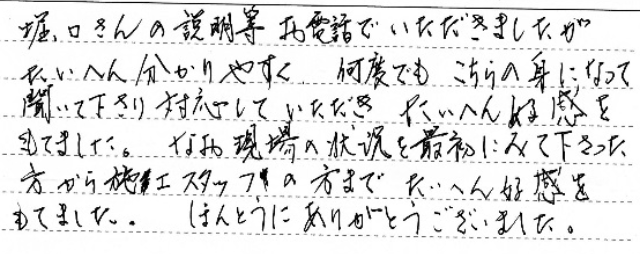 堀口さんの説明等お電話でいただきましたが
たいへん分かりやすく 何度でも こちらの身になって
聞いて下さり対応していただき たいへん好感を
もてました。 なお現場の状況を最初にみて下さった
方から施工スタッフの方まで たいへん好感を
もてました。 ほんとうにありがとうございました。